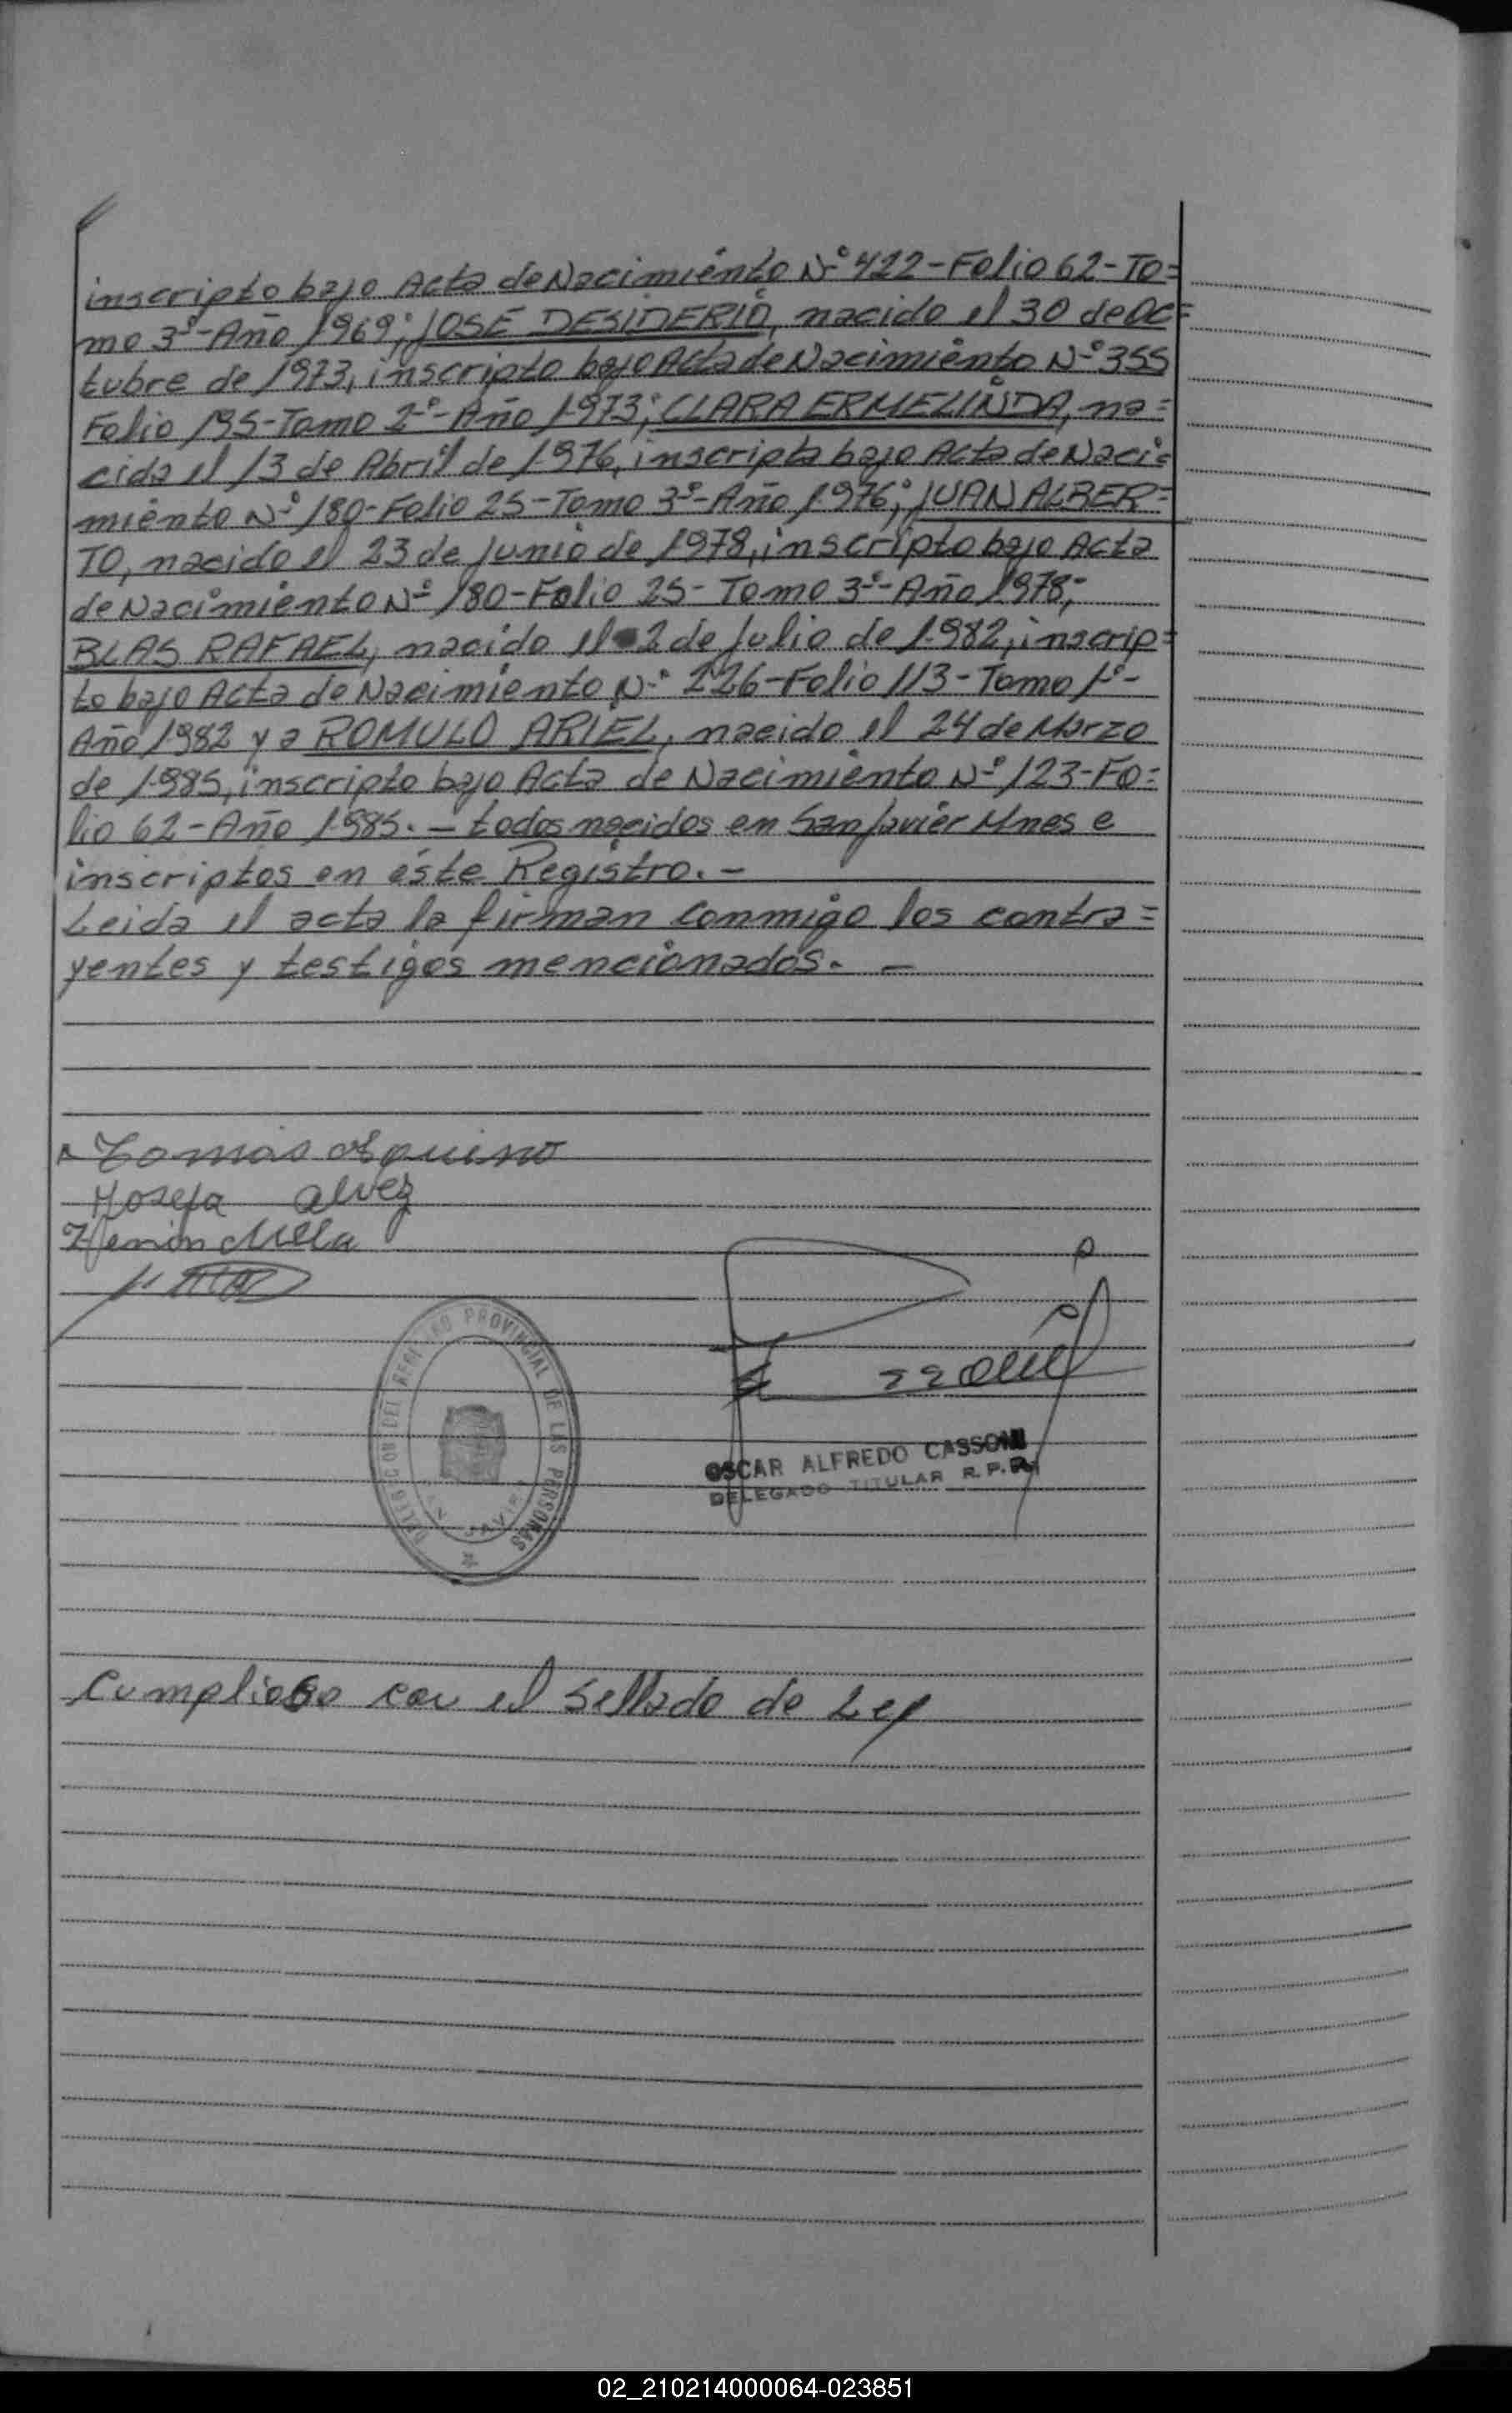 inscripto bajo Acta de Nacimiento Nº 422-Folio 62-To=
mo 3º-Año 1969; JOSE DESIDERIO, nacido el 30 de Oc=
tubre de 1973, inscripto bajo Acta de Nacimiento Nº 355
Folio 195-Tomo 2º-Año 1973; CLARA ERMELINDA, na=
cida el 13 de Abril de 1976, inscripta bajo Acta de Naci=
miento Nº 180-Folio 25-Tomo 3º-Año 1976; JUAN ALBER=
TO, nacido el 23 de Junio de 1978, inscripto bajo Acta
de Nacimiento Nº 180-Folio 25-Tomo 3º-Año 1978;-
BLAS RAFAEL, nacido el 2 de Julio de 1982, inscrip=
to bajo Acta de Nacimiento Nº 226-Folio 113-Tomo 1º-
Año 1982 y a ROMULO ARIEL, nacido el 24 de Marzo
de 1985, inscripto bajo Acta de Nacimiento Nº 123-Fo=
lio 62-Año 1985.- todos nacidos en San Javier Mnes e
inscriptos en éste Registro.-
Leida el acta la firman conmmigo los contra=
yentes y testigos mencionados.-
Tomas Aquino
Josefa Alvez
DELEGACION DEL REGISTRO PROVINCIAL DE LAS PERSONAS
SAN JAVIER
OSCAR ALFREDO CASSONI
DELEGADO TITULAR R.P.P.
Cumplioso con el Sellado de Ley
02_210214000064-023851